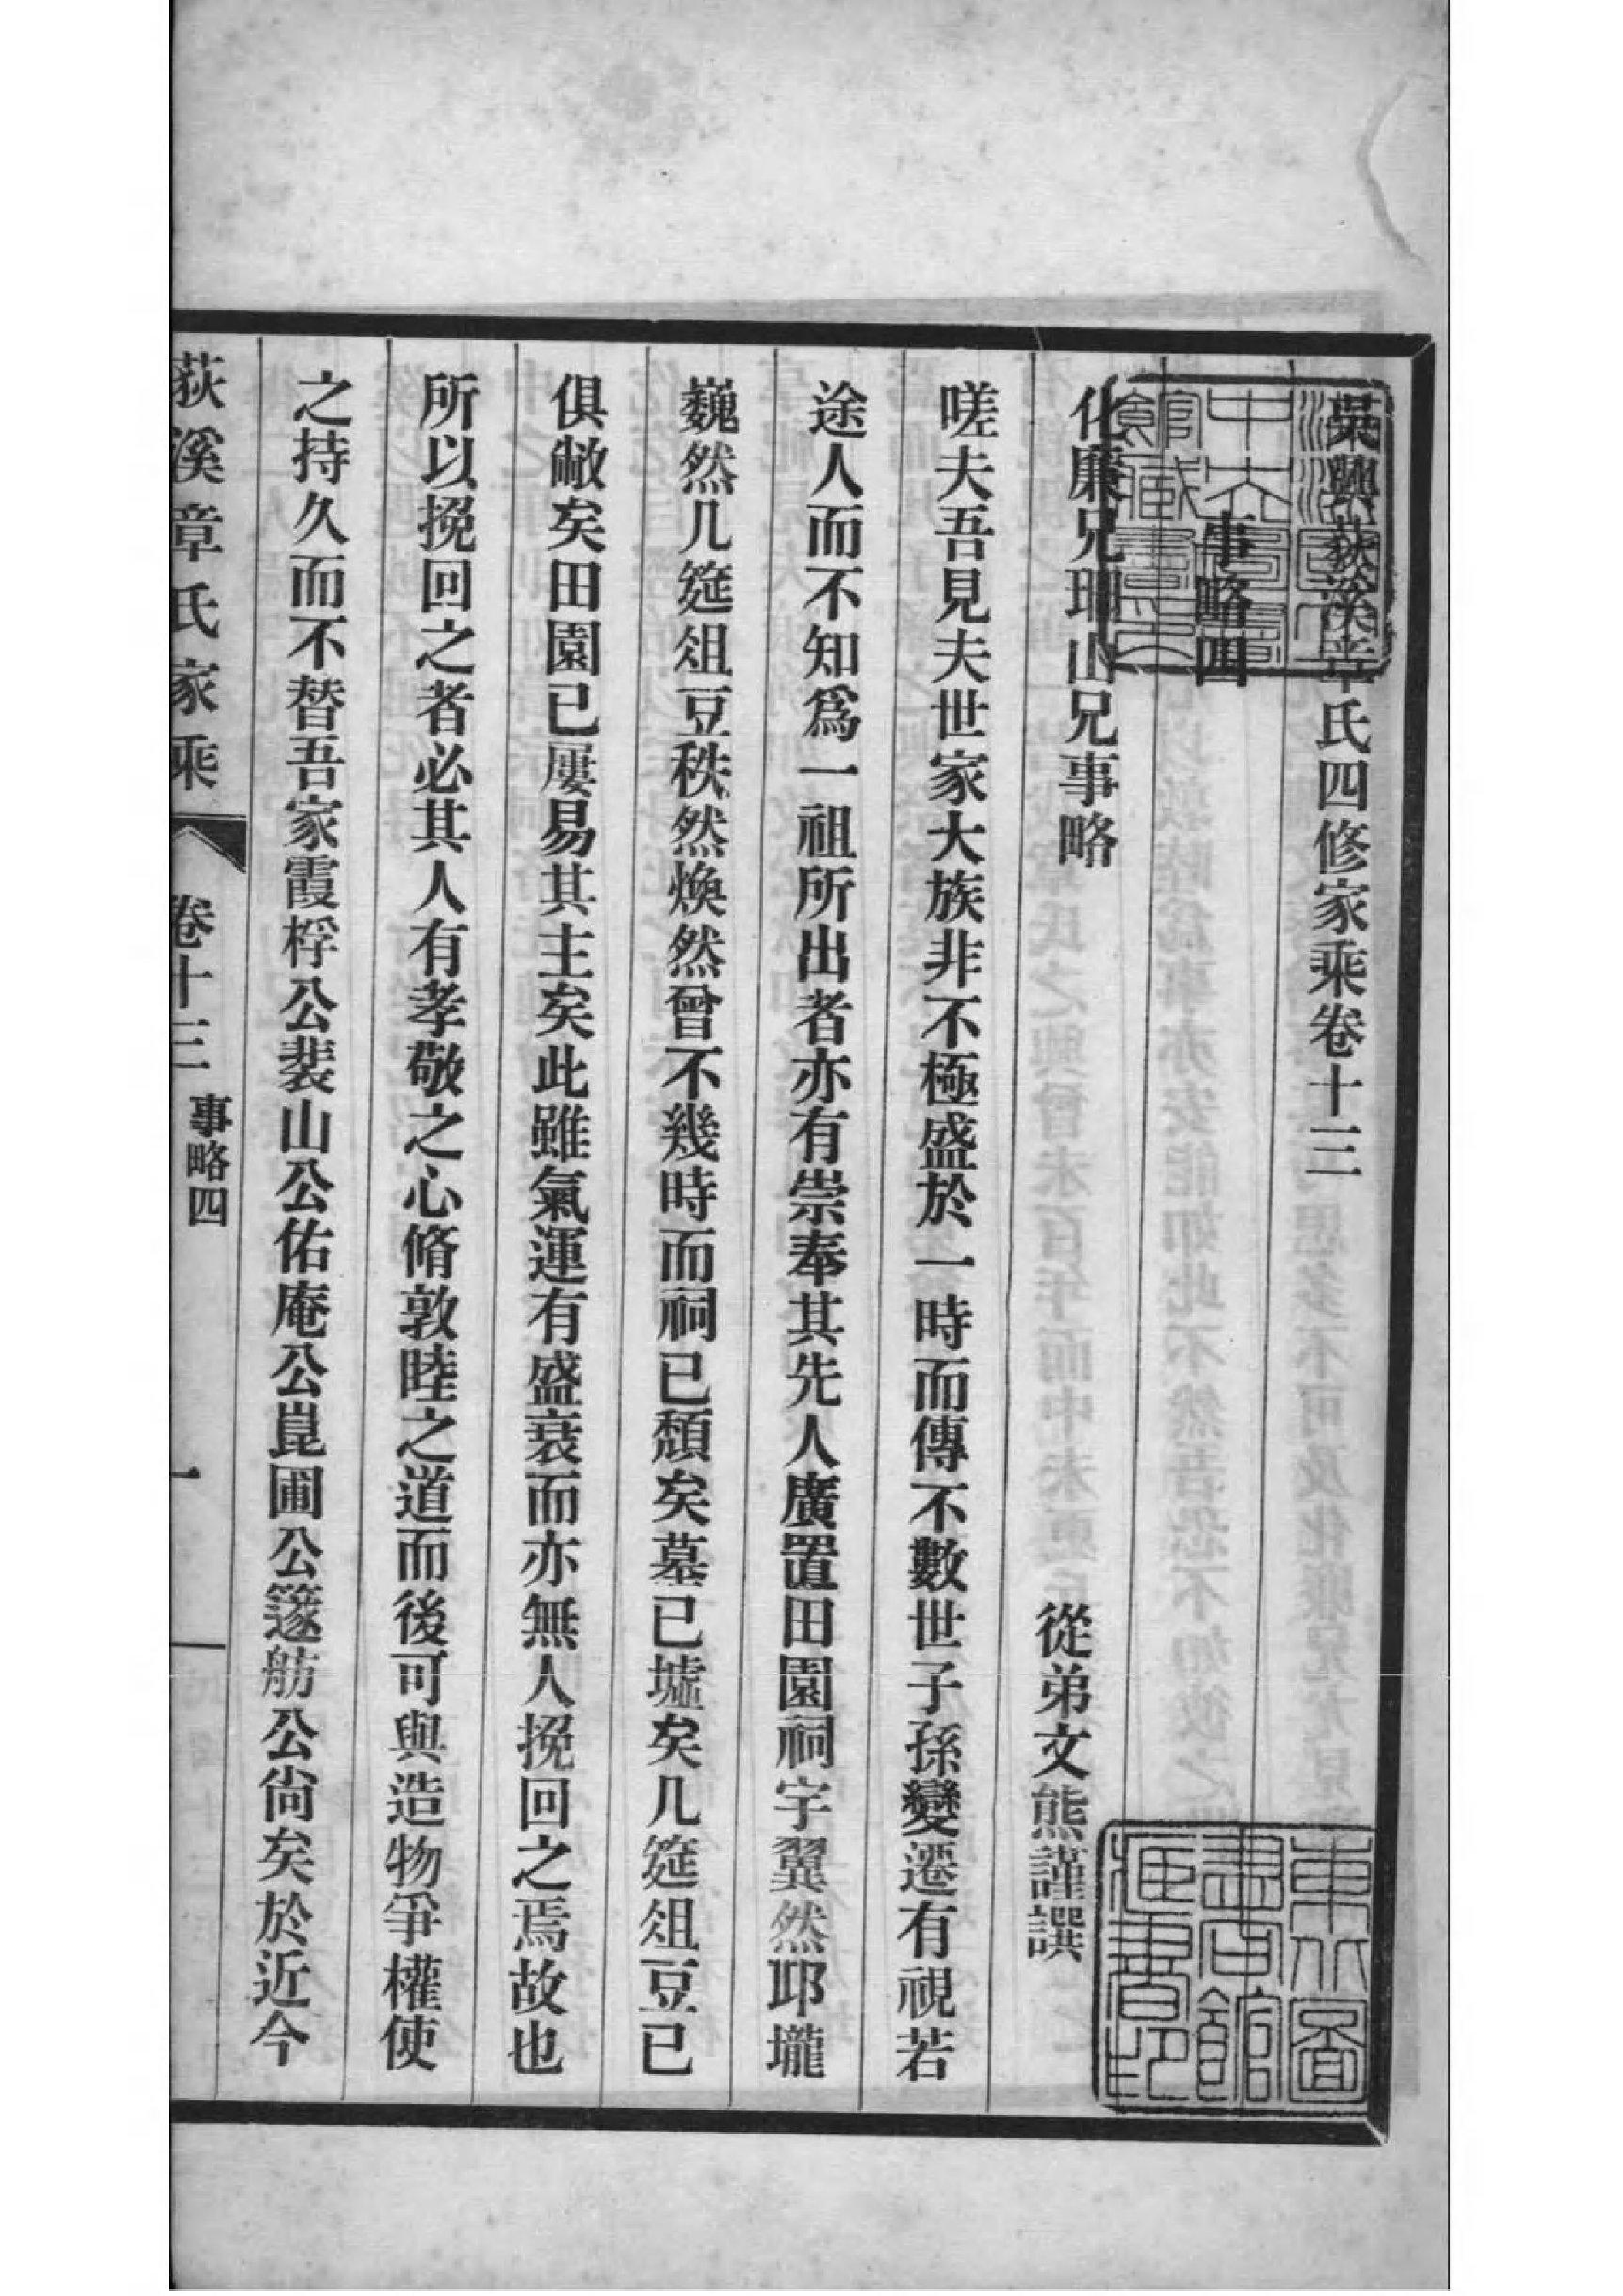 吳興荻溪章氏四修家乘卷十三
事略四
化廉兄珊山兄事略
從弟文熊謹譔
嗟夫吾見夫世家大族非不極盛於一時而傳不數世子孫變遷有視若
途人而不知爲一祖所出者亦有崇奉其先人廣置田園祠宇翼然邱壠
巍然几筵俎豆秩然煥然曾不幾時而祠已頹矣墓已墟矣几筵俎豆已
俱敝矣田園已屢易其主矣此雖氣運有盛衰而亦無人挽回之焉故也
所以挽回之者必其人有孝敬之心脩敦睦之道而後可與造物爭權使
之持久而不替吾家霞桴公裴山公佑庵公崑圃公籧舫公尙矣於近今
荻溪章氏家乘
卷十三
事略四
一
東北圖
書館
所藏書印